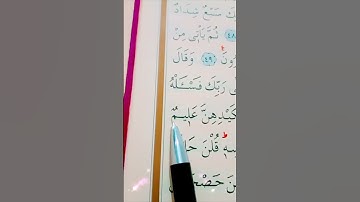 كَ سَبْعٌ شِدَادٌ
٤٨ ثُمَّ يَأْتِي مِنْ
رُونَ ٤٩ وَقَالَ
رَبِّكَ فَسْـَٔلْهُ
كَيْدِهِنَّ عَلِيمٌ
سِهِۦ قُلْنَ حَا
نَ حَصْحَ